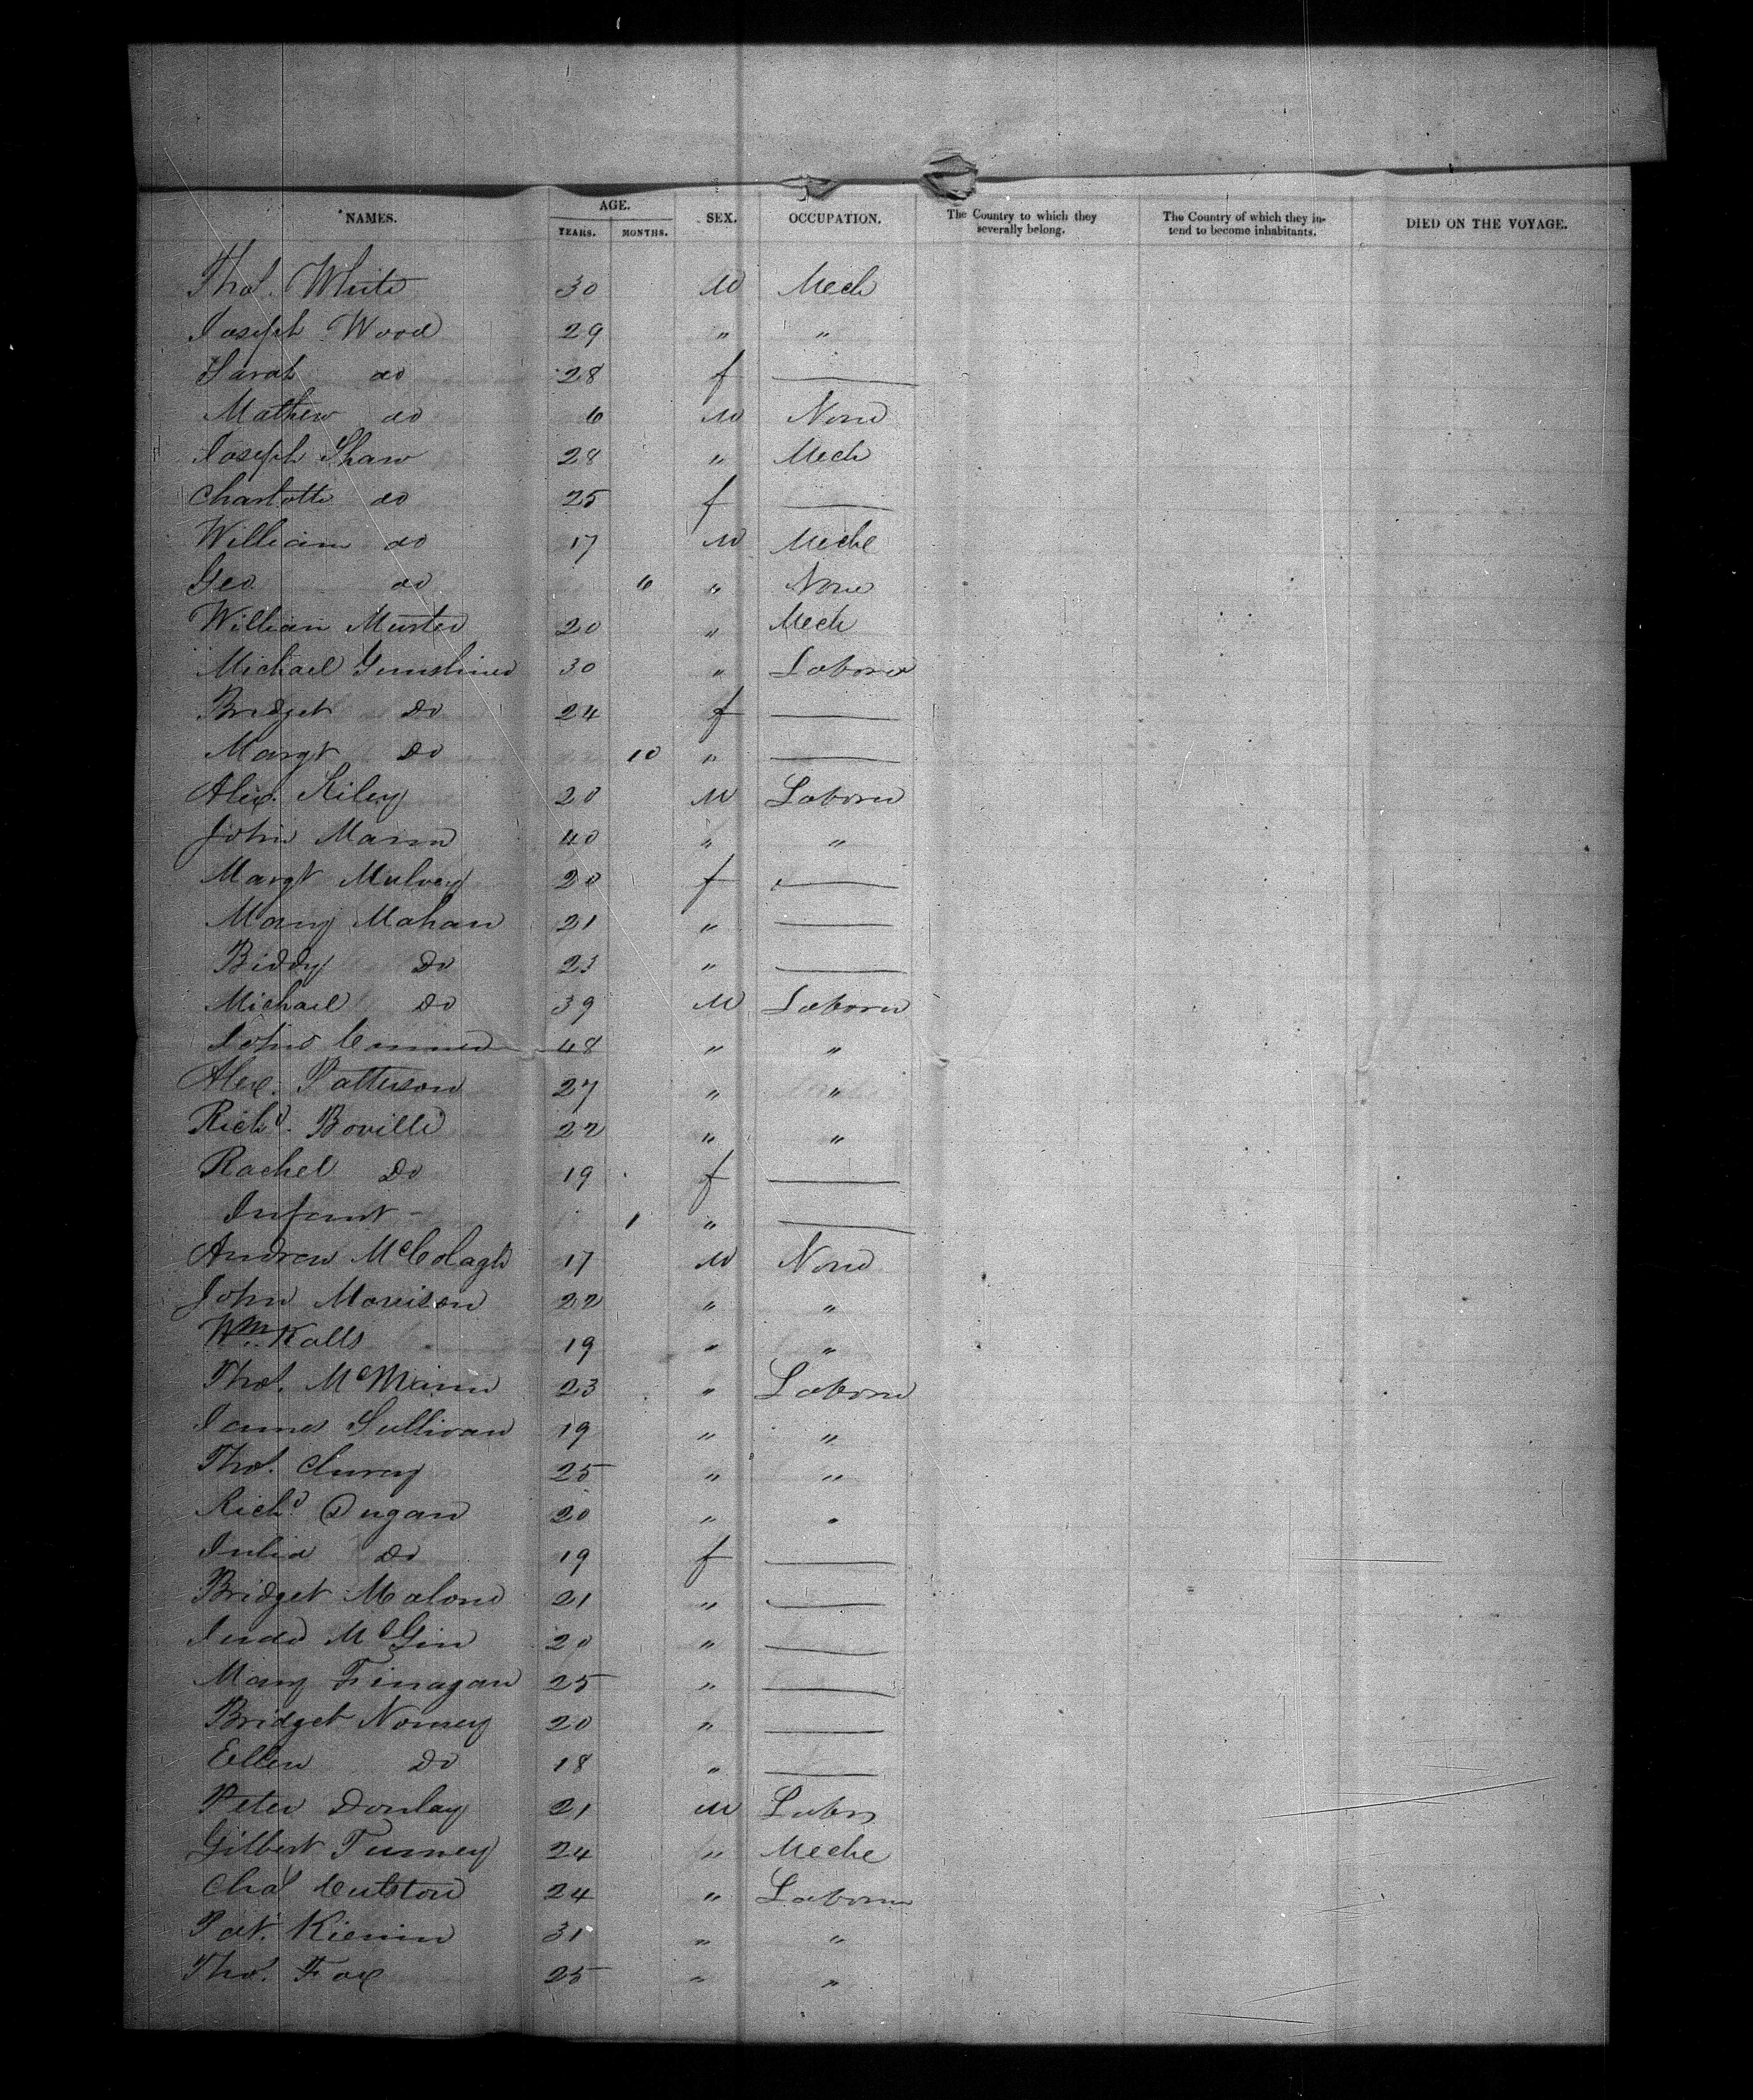 NAMES. AGE. YEARS. MONTHS. SEX. OCCUPATION. The Country to which they severally belong. The Country of which they intend to become inhabitants. DIED ON THE VOYAGE.
Thos. White 30 M Mech
Joseph Wood 29 " "
Sarah do 28 f —
Mathew do 6 M None
Joseph Shaw 28 " Mech
Charlotte do 25 f —
William do 17 M Mech
Geo do 6 " None
William Muster 20 " Mech
Michael 30 " Laborer
Bridget Do 24 f —
Margt Do 10 " —
Alex. Kiley 20 M Laborer
John Mann 40 " "
Margt Mulvey 20 f —
Mary Mahan 21 " —
Biddy Do 23 " —
Michael Do 39 M Laborer
John 48 " "
Alex. Patterson 27 " "
Richd. Boville 22 " "
Rachel Do 19 f —
Infant 1 " —
Andrew McColagh 17 M None
John Morrison 22 " "
Wm. Kalls 19 " "
Thos. McMann 23 " Laborer
James Sullivan 19 " "
Thos. 25 " "
Richd. Dugan 20 " "
Julia Do 19 f —
Bridget Malone 21 " —
McGin 20 " —
Mary Finagan 25 " —
Bridget 20 " —
Ellen Do 18 " —
Peter Donlay 21 M Labr
Gilbert Turney 24 " Meche
Chas 24 " Laborer
Pat. 31 " "
Thos. Fox 25 " "